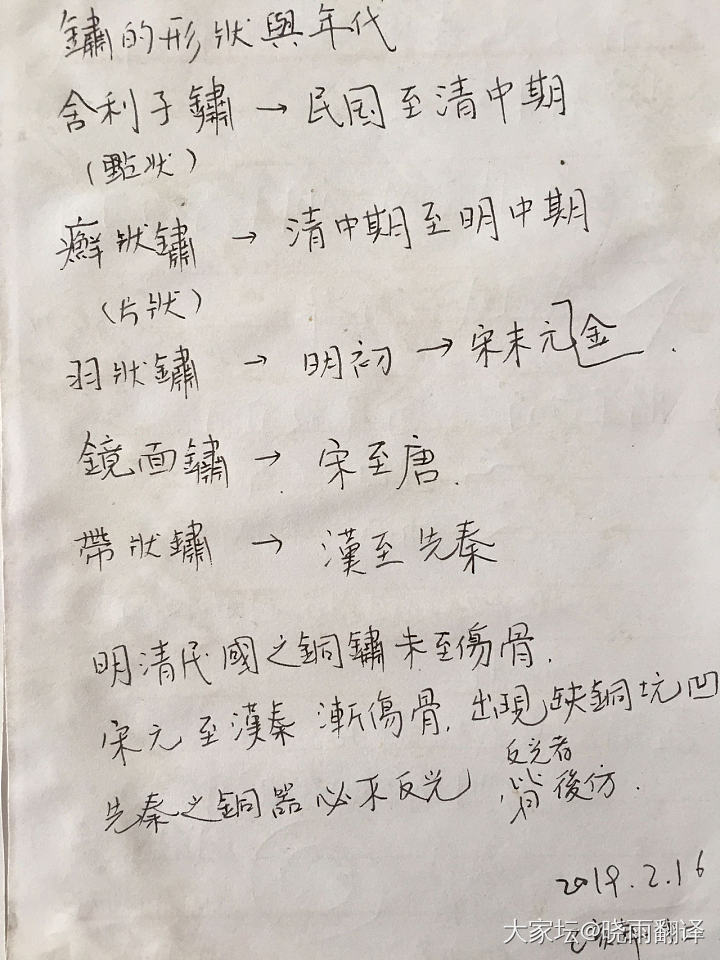 鏽的形狀與年代
舍利子鏽 → 民国至清中期
(點狀)
癬狀鏽 → 清中期至明中期
(片狀)
羽狀鏽 → 明初 → 宋末元金.
鏡面鏽 → 宋至唐.
帶狀鏽 → 漢至先秦
明清民國之銅鏽未至傷骨.
宋元至漢秦漸傷骨.出現缺銅坑凹
先秦之銅器必不反光
反光者
皆後仿.
2019.2.16
大家坛@晓雨翻译